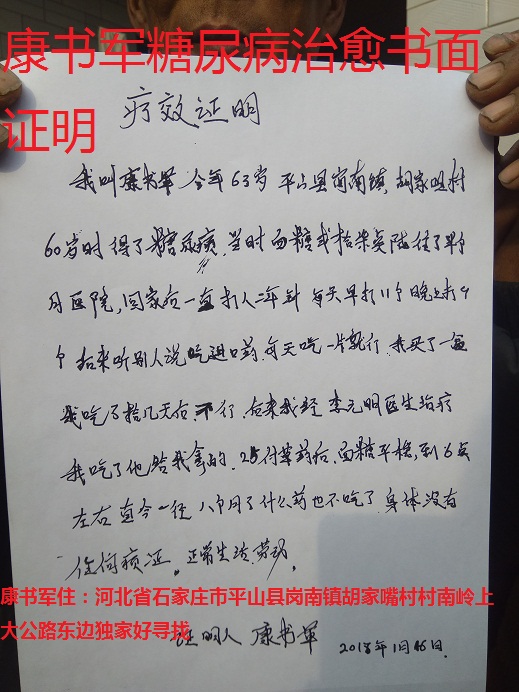 康书军糖尿病治愈书面
证明
疗效证明
我叫康书军 今年63岁 平山县岗南镇,胡家咀村
60岁时得了糖尿病,当时面糖或拾柒点陆住了半
月医院,回家后一直打人二年针 每天早打11个晚上打9
个 后来听别人说吃进口药,每天吃一片就行.我买了一
我吃了拾几天后,不行.后来我经 李元明医生治疗
我吃了他给我拿的.25付草药后.面糖平稳,到6点
左右 直今一经 八个月了什么药也不吃了 身体没有
任何病症。正常生活,劳动,
康书军住:河北省石家庄市平山县岗南镇胡家嘴村村南岭上
大公路东边独家好寻找
证明人 康书军 2018年1月 日.